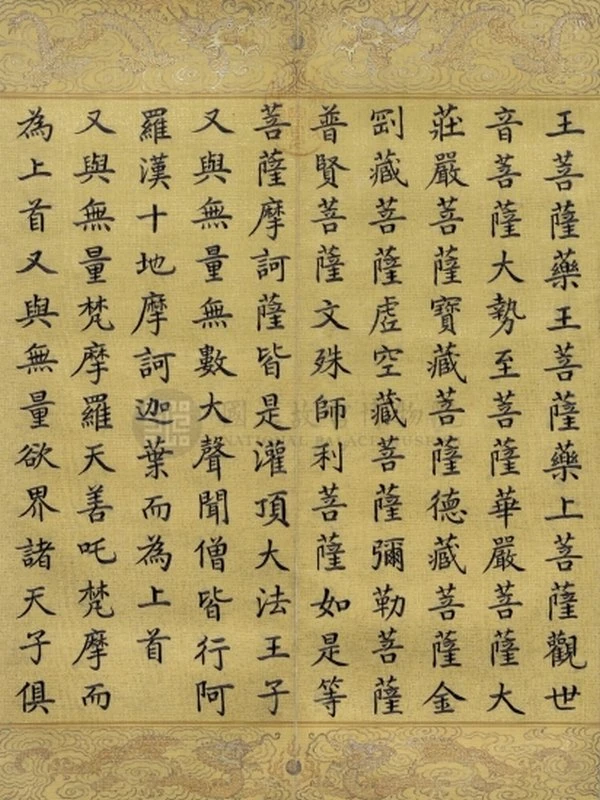 王菩薩藥王菩薩藥上菩薩觀世
音菩薩大勢至菩薩華嚴菩薩大
莊嚴菩薩寶藏菩薩德藏菩薩金
剛藏菩薩虛空藏菩薩彌勒菩薩
普賢菩薩文殊師利菩薩如是等
菩薩摩訶薩皆是灌頂大法王子
又與無量無數大聲聞僧皆行阿
羅漢十地摩訶迦葉而為上首
又與無量梵摩羅天善吒梵摩而
為上首又與無量欲界諸天子俱